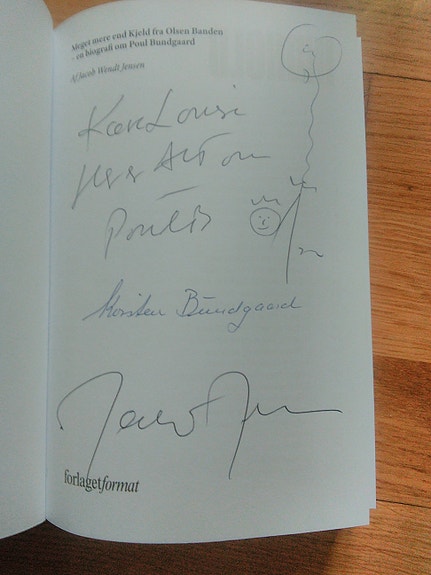 Meget mere end Kjeld fra Olsen Banden
- en biografi om Poul Bundgaard
Af Jacob Wendt Jensen
Kære Louise
Her er Alt om
Bundgaard
forlagetformat